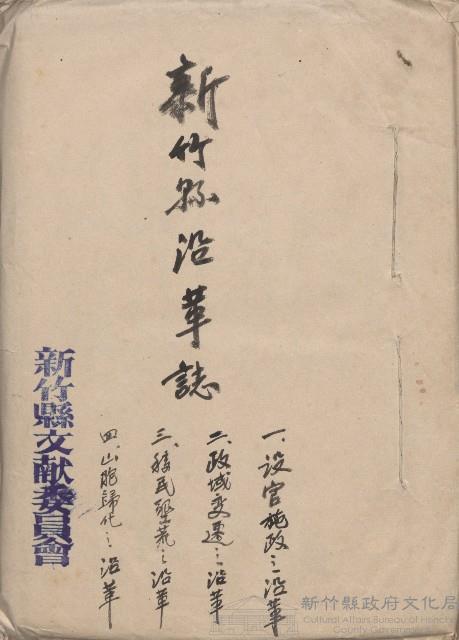 新竹縣沿革誌
一、设官施政之沿革
二、政域变遷之沿革
三、移民墾荒之沿革
四、山胞歸化之沿革
新竹縣文献委員會
新竹縣政府文化局
Cultural Affairs Bureau of Hsinchu
County Government